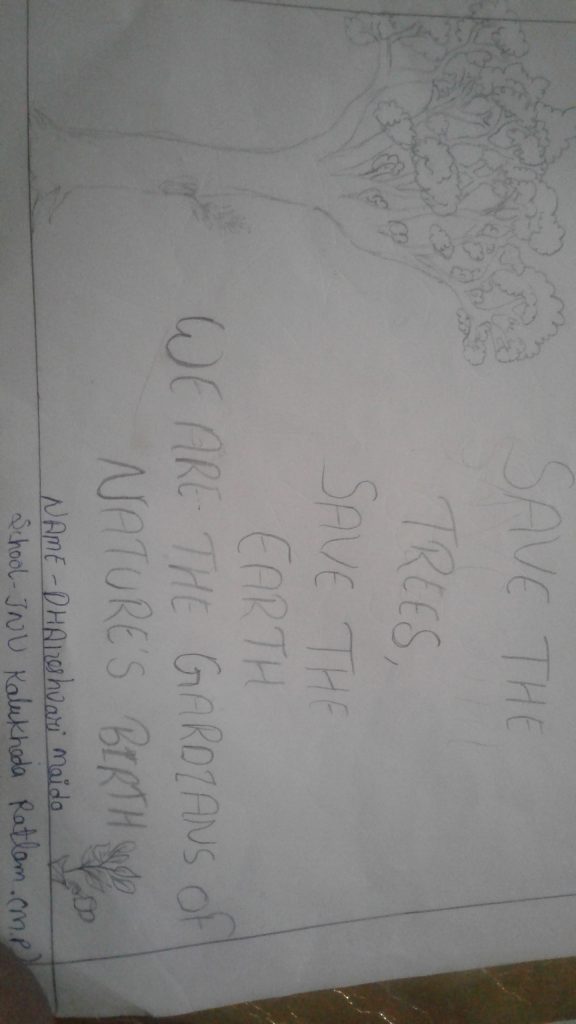 SAVE THE
TREES,
SAVE THE
EARTH
WE ARE THE GARDIANS OF
NATURE'S BIRTH
NAME - DHAireshvari maida
School - JNV Kalukheda Ratlam (M.P)